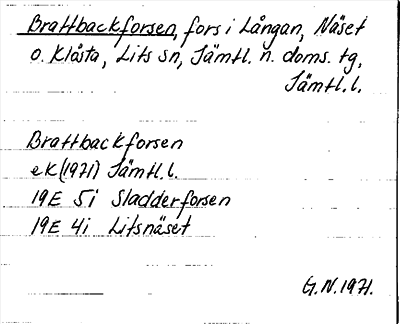 Brattbackforsen, fors i Långan, Näset
o. Klåsta, Lits sn, Jämtl. n. doms. tg,
Jämtl.l.
Brattbackforsen
eK(1971) Jämtl.l.
19E 5i Sladderforsen
19E 4i Litsnäset
G.N.1971.